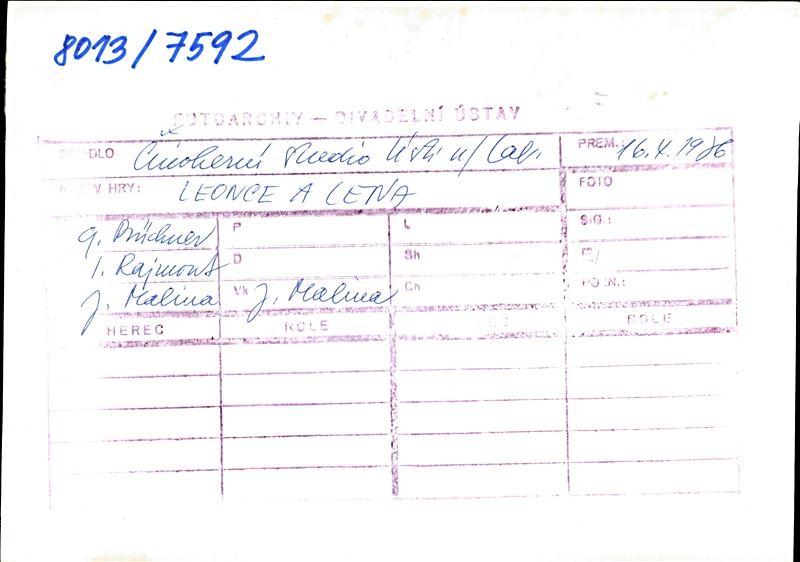 8013/7592
FOTOARCHIV — DIVADELNÍ ÚSTAV
DIVADLO Činoherní studio Ústí n/Lab. PREM.: 16.4.1976
NÁZEV HRY: LEONCE A LENA FOTO
G. Büchner P L SIG.:
I. Rajmont D Sh
J. Malina Vk J. Malina Ch
HEREC ROLE ROLE